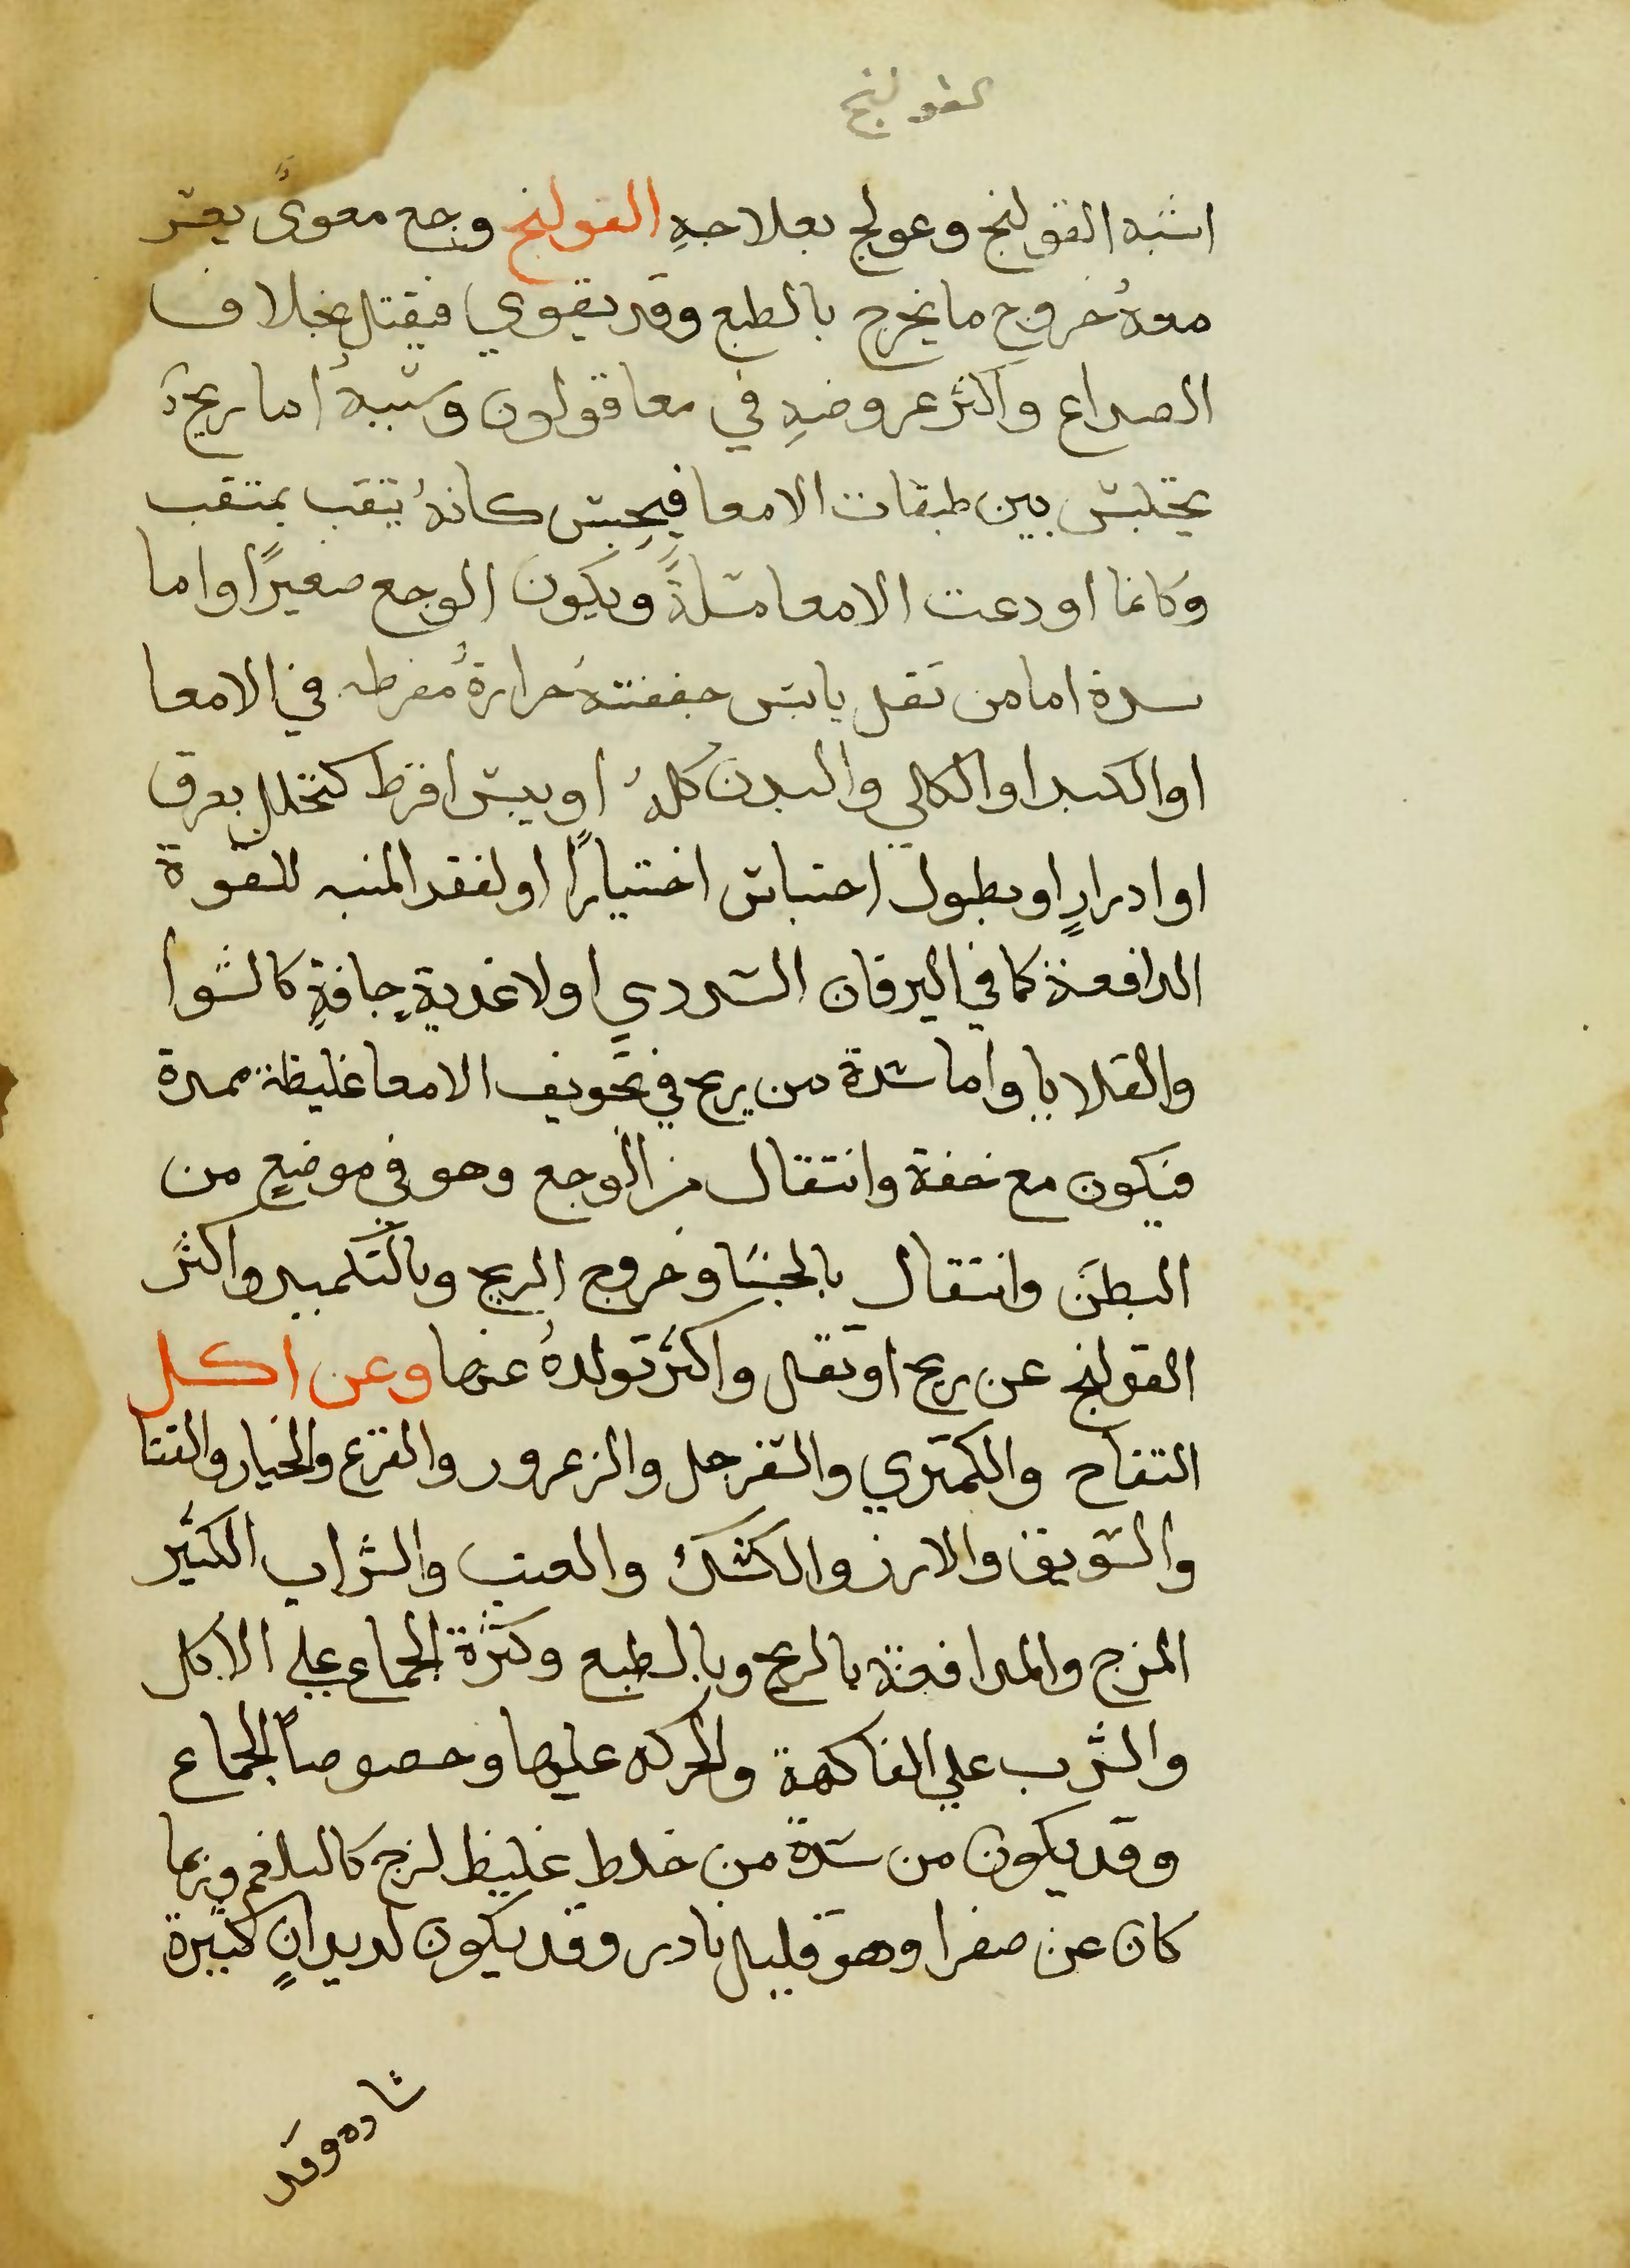 القولنج
اشبه القولنج وعولج بعلاجهِ القولنج وجع معوىً يعسر
معهُ خروج ما يخرج بالطبع وقد يقوي فيقتل بخلاف
الصداع واكثر عروضهِ في معا قولون وسببهُ اما ريح
يحتبس بين طبقات الامعا فيحبس كانهُ يثقب بمثقب
وكانما اودعت الامعا مسلةً ويكون الوجع صغيرًا واما
سدة اما من ثفل يابس جففتهُ حرارةُ مفرطه في الامعا
او الكبد او الكلي والبدن كلهُ او يبس افرط كتخلل بعرق
او ادرارٍ او بطول احتباس اختيارًا او لفقد المنبه للقوة
الدافعة كما في اليرقان السددي او لاغديةٍ جافةٍ كالشوا
والقلايا واما سدة من ريح في تجويف الامعا غليظة ممددة
فيكون مع خفة وانتقال من الوجع وهو في موضعٍ من
البطن وانتقال بالجشا وخروج الريح وبالتكميد واكثر
القولنج عن ريح او ثفل واكثر تولدهُ عنها وعن اكل
التفاح والكمثري والسفرجل والزعرور والقرع والخيار والقثا
والسويق والارز والكشك والعنب والشراب الكثير
المزج والمدافعة بالريح وبالطبع وكثرة الجماع علي الاكل
والشرب علي الفاكهة والحركه عليها وخصوصاً الجماع
وقد يكون من سدة من خلط غليظ لزج كالبلغم وربما
كان عن صفرا وهو قليل نادر وقد يكون لديدانٍ كثيرة
سادة وقد